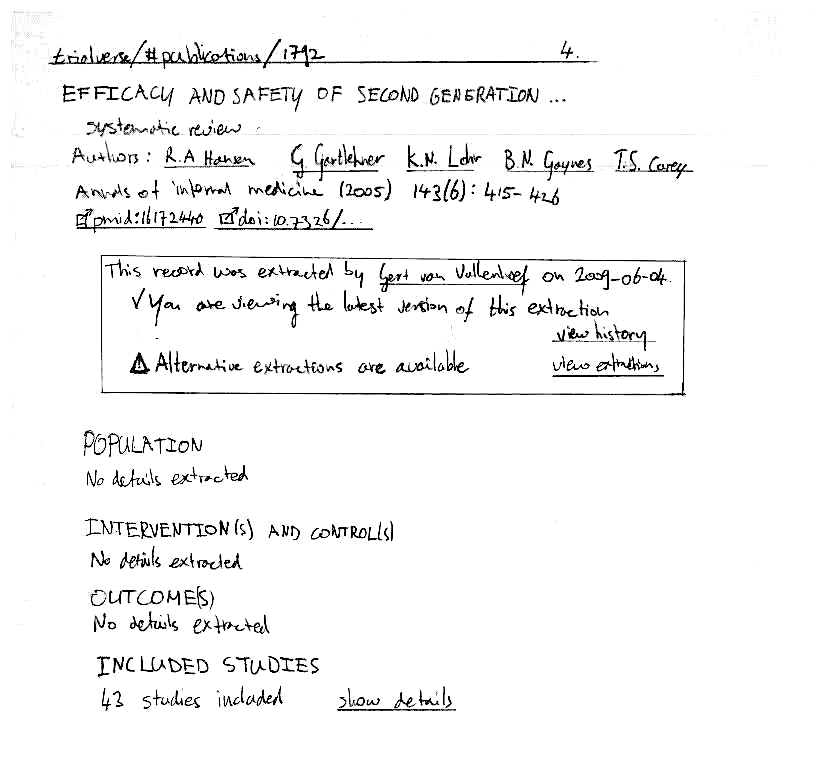 trialverse/#publications/1792 4.
EFFICACY AND SAFETY OF SECOND GENERATION ...
systematic review
Authors: R.A Hansen G Gartlehner K.N. Lohr B.N. Gaynes T.S. Carey
Annals of internal medicine (2005) 143(6): 415-426
pmid:16172440 doi:10.7326/...
This record was extracted by Gert van Valkenhoef on 2009-06-04.
✓ You are viewing the latest version of this extraction
view history
⚠ Alternative extractions are available view extractions
POPULATION
No details extracted
INTERVENTION(S) AND CONTROL(S)
No details extracted
OUTCOME(S)
No details extracted
INCLUDED STUDIES
43 studies included show details